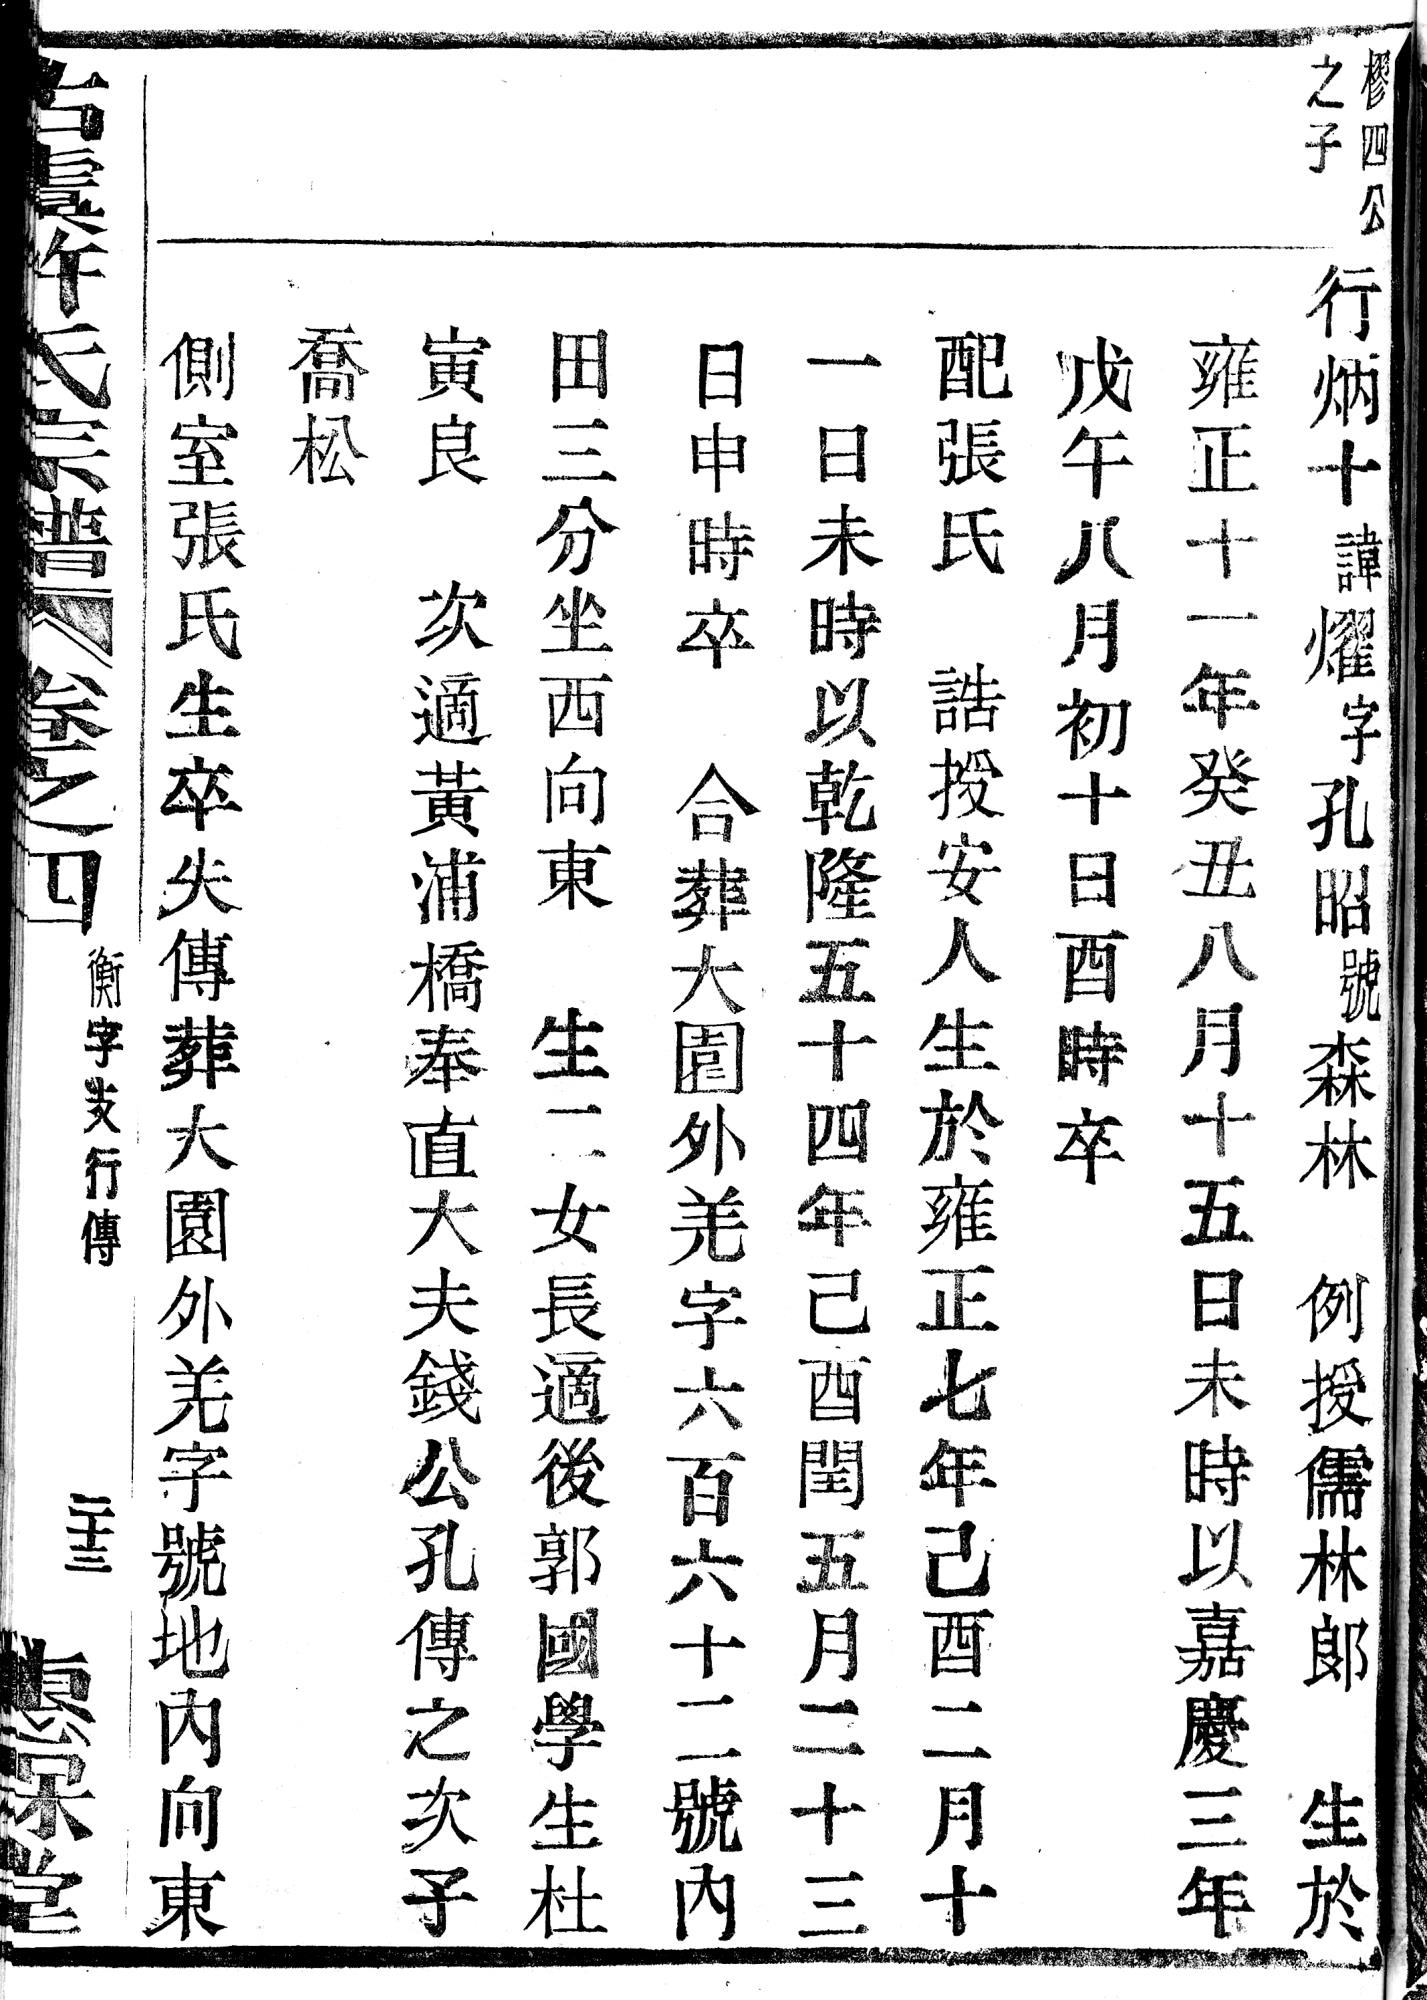 樛四公
之子
行炳十諱燿字孔昭號森林　例授儒林郎　生於
雍正十一年癸丑八月十五日未時以嘉慶三年
戊午八月初十日酉時卒
配張氏　誥授安人生於雍正七年己酉二月十
一日未時以乾隆五十四年己酉閏五月二十三
日申時卒　合葬大園外羌字六百六十二號內
田三分坐西向東　生二女長適後郭國學生杜
寅良　次適黃浦橋奉直大夫錢公孔傳之次子
喬松
側室張氏生卒失傳葬大園外羌字號地內向東
古虞許氏宗譜　卷之四　衡字支行傳　二十三